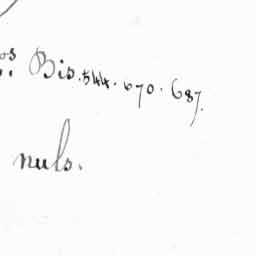 os Bis. 544. 670. 687.
nuls.